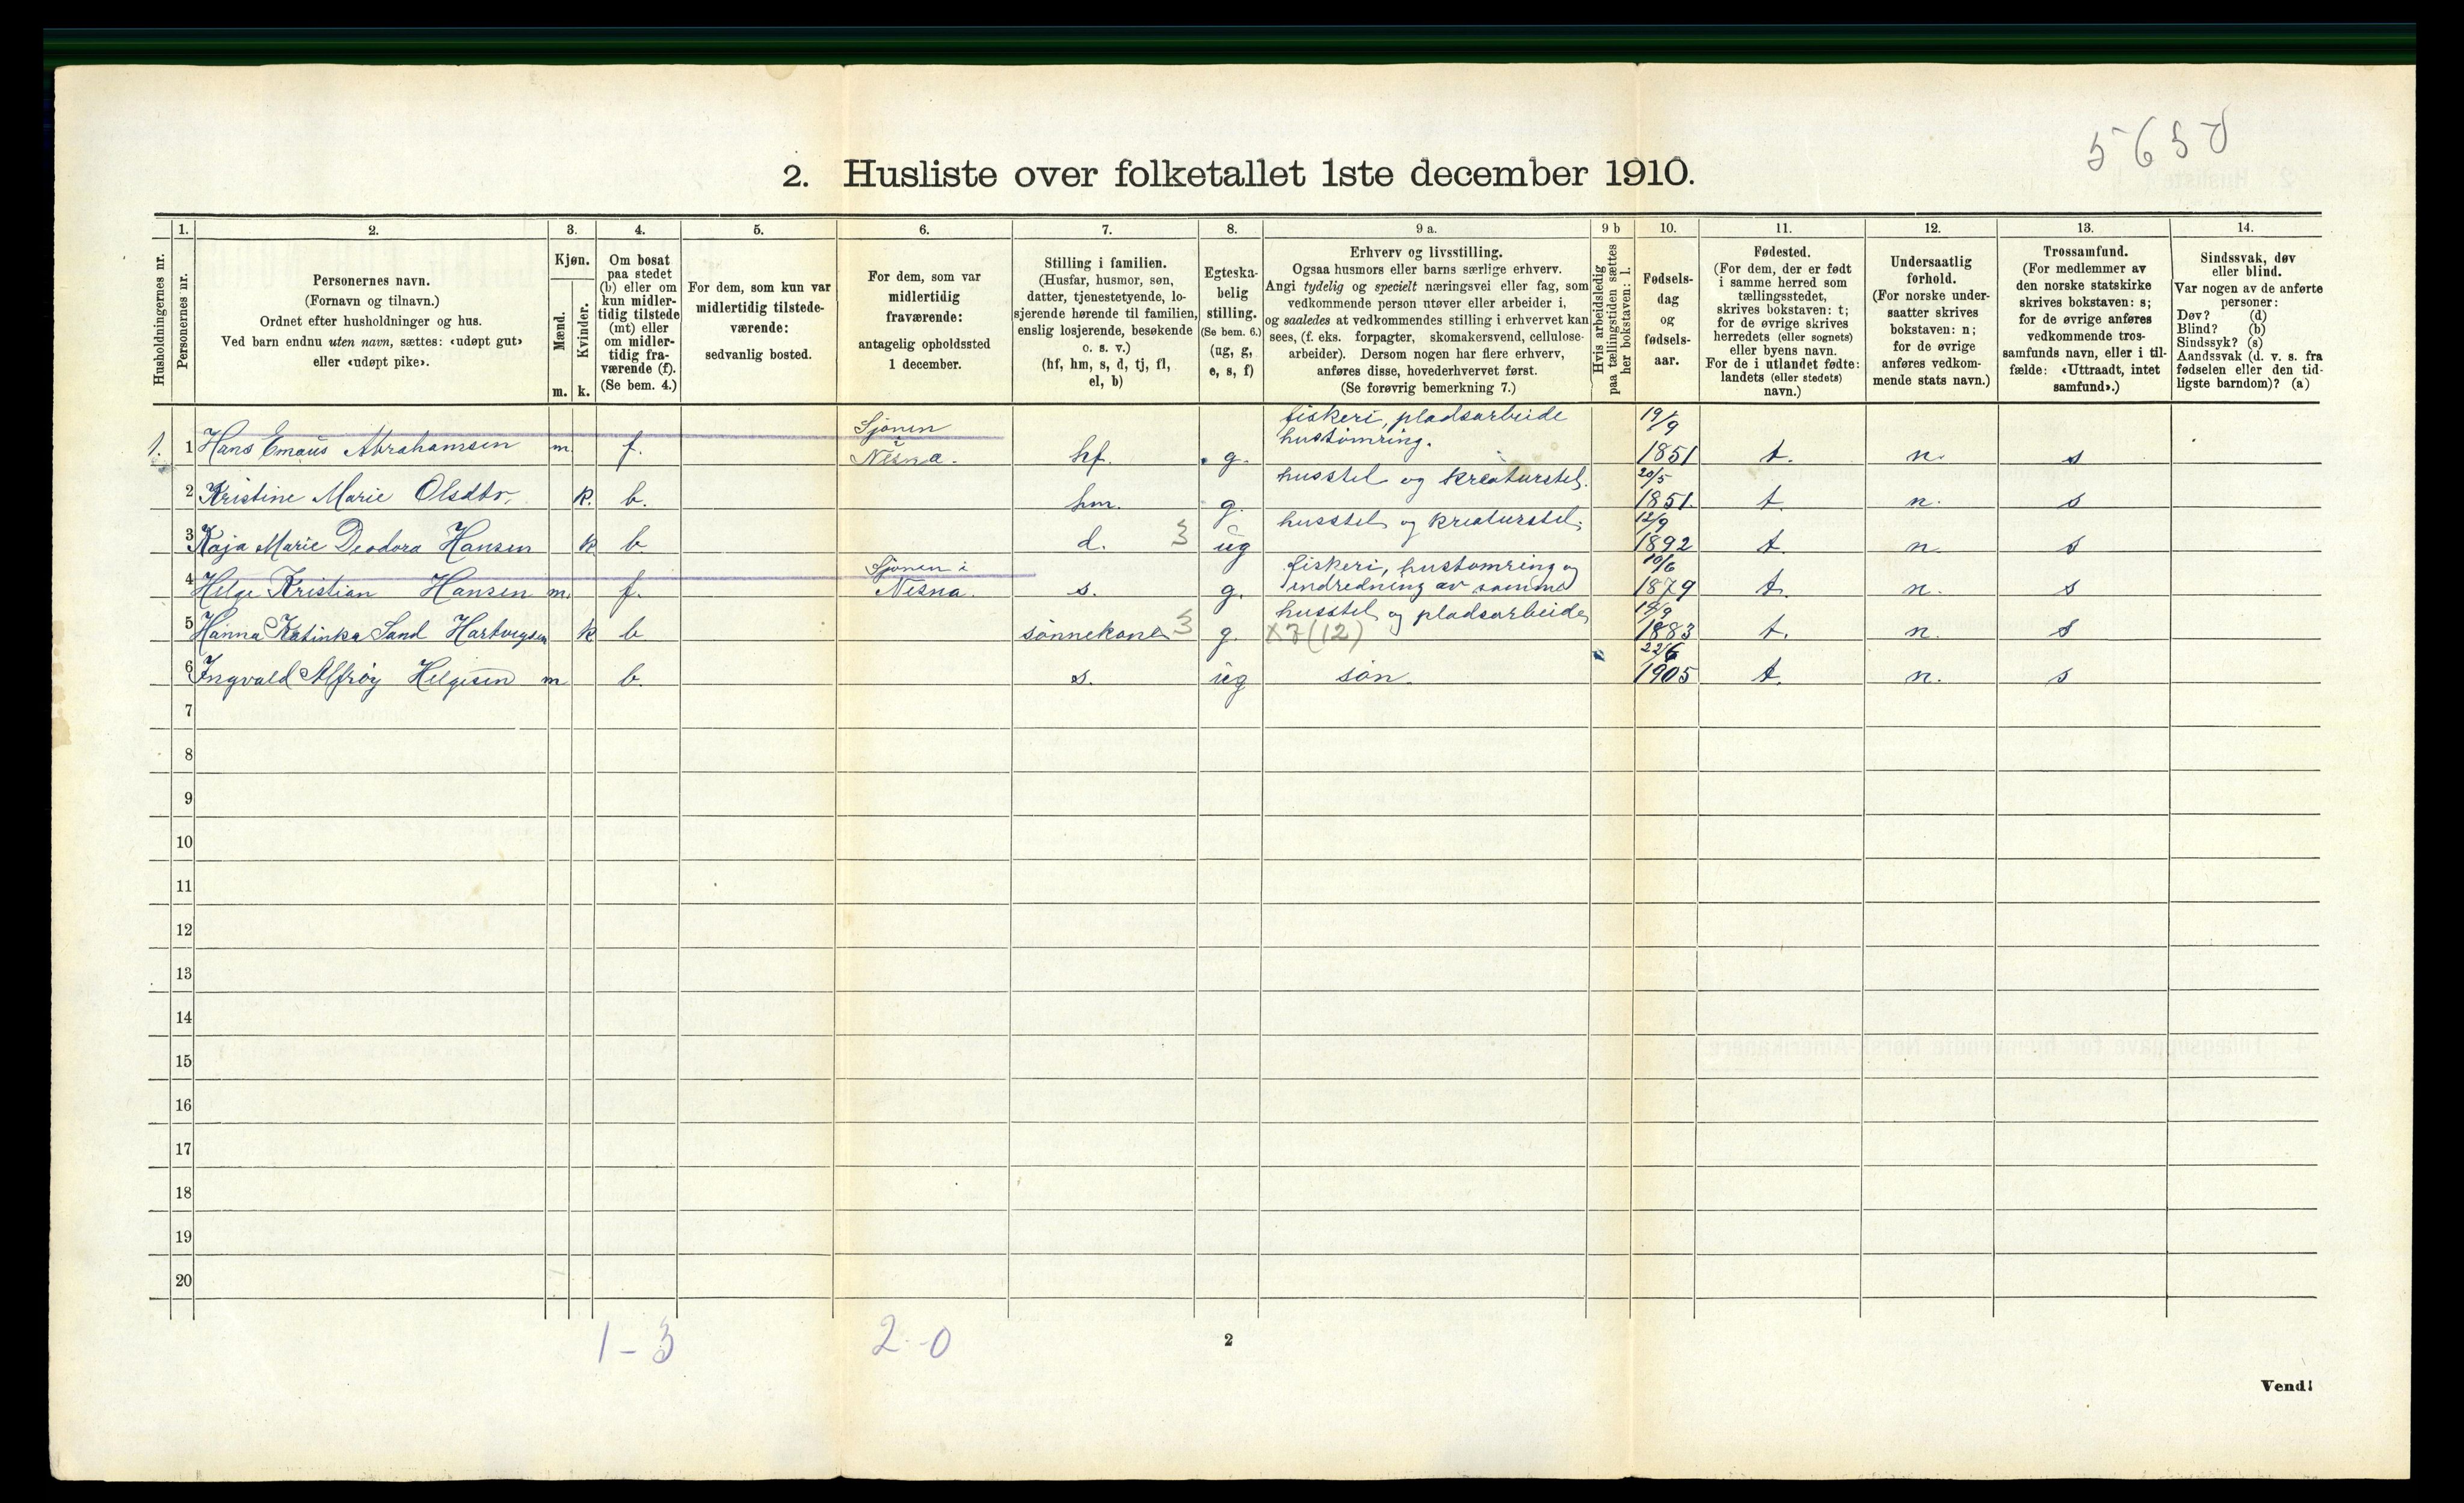 5658
2. Husliste over folketallet 1ste december 1910.
Husholdningernes nr.
1.
Personernes nr.
2.
Personernes navn.
(Fornavn og tilnavn.)
Ordnet efter husholdninger og hus.
Ved barn endnu uten navn, sættes: «udøpt gut»
eller «udøpt pike».
3.
Kjøn.
Mænd.
Kvinder.
m. k.
4.
Om bosat
paa stedet
(b) eller om
kun midler-
tidig tilstede
(mt) eller
om midler-
tidig fra-
værende (f).
(Se bem. 4.)
5.
For dem, som kun var
midlertidig tilstede-
værende:
sedvanlig bosted.
6.
For dem, som var
midlertidig
fraværende:
antagelig opholdssted
1 december.
7.
Stilling i familien.
(Husfar, husmor, søn,
datter, tjenestetyende, lo-
sjerende hørende til familien,
enslig losjerende, besøkende
o. s. v.)
(hf, hm, s, d, tj, fl,
el, b)
8.
Egteska-
belig
stilling.
(Se bem. 6.)
(ug, g,
e, s, f)
9 a.
Erhverv og livsstilling.
Ogsaa husmors eller barns særlige erhverv.
Angi tydelig og specielt næringsvei eller fag, som
vedkommende person utøver eller arbeider i,
og saaledes at vedkommendes stilling i erhvervet kan
sees, (f. eks. forpagter, skomakersvend, cellulose-
arbeider). Dersom nogen har flere erhverv,
anføres disse, hovederhvervet først.
(Se forøvrig bemerkning 7.)
9 b
Hvis arbeidsledig
paa tællingstiden sættes
her bokstaven: l.
10.
Fødsels-
dag
og
fødsels-
aar.
11.
Fødested.
(For dem, der er født
i samme herred som
tællingsstedet,
skrives bokstaven: t;
for de øvrige skrives
herredets (eller sognets)
eller byens navn.
For de i utlandet fødte:
landets (eller stedets)
navn.)
12.
Undersaatlig
forhold.
(For norske under-
saatter skrives
bokstaven: n;
for de øvrige
anføres vedkom-
mende stats navn.)
13.
Trossamfund.
(For medlemmer av
den norske statskirke
skrives bokstaven: s;
for de øvrige anføres
vedkommende tros-
samfunds navn, eller i til-
fælde: «Uttraadt, intet
samfund».)
14.
Sindssvak, døv
eller blind.
Var nogen av de anførte
personer:
Døv? (d)
Blind? (b)
Sindssyk? (s)
Aandssvak (d. v. s. fra
fødselen eller den tid-
ligste barndom)? (a)
Sjonen fiskeri, pladsarbeide 19/9
i hustømring.
1. 1 Hans Emaus Abrahamsen m f. Nesna. hf. g. 1851 t. n. s
husstel og kreaturstel. 20/5
2 Kristine Marie Olsdtr. k. b. hm. g. 1851. t. n. s
husstel og kreaturstel. 12/9
3 Kaja Marie Deodora Hansen k b d. 3 ug 1892 t. n. s
Sjonen i fiskeri, hustømring og 10/6
4 Helge Kristian Hansen m. f. Nesna. s. g. indredning av samme 1879 t. n. s
husstel og pladsarbeide
5 Hanna Katinka Sand Hartvigsen k b sønnekone 3 g. X7(12) 1883 t. n. s
22/6
6 Ingvald Alfrøy Helgesen m b. s. ug søn. 1905 t. n. s
7
8
9
10
11
12
13
14
15
16
17
18
19
20
1-3 2-0
2
Vend!